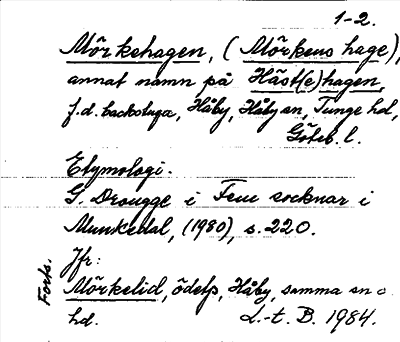 1-2.
Mörkehagen, (Mörkens hage),
annat namn på Häst(e)hagen,
f.d. backstuga, Håby, Håby sn, Tunge hd,
Göteb. l.
Etymologi.
G. Drougge i Fem socknar i
Munkedal, (1980), s. 220.
Jfr:
Mörkelid, ödelp, Håby, samma sn o
hd. L.-t. B. 1984.
Forts.